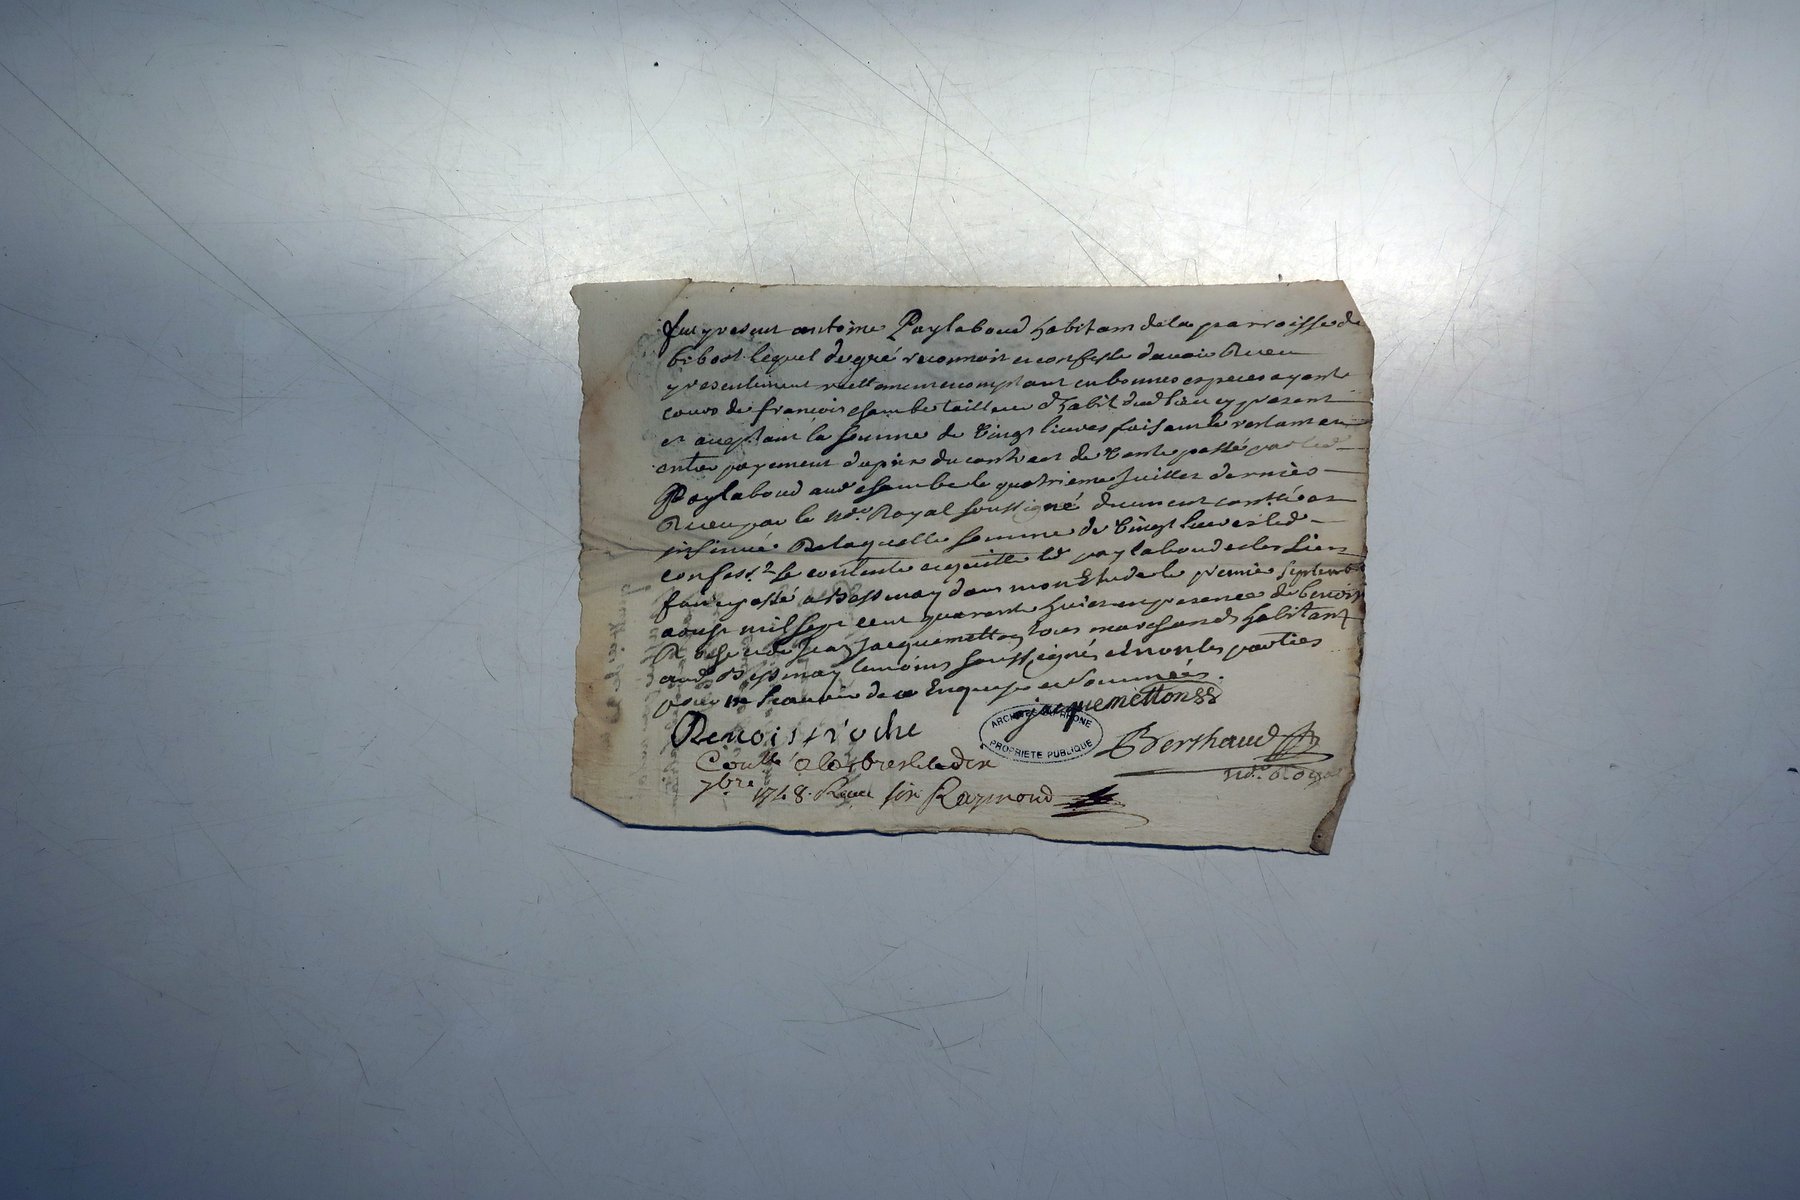 fut present antoine Paylaboud habitant de la parroisse de
bibost lequel de gré reconnoit et confesse d'avoir Receu
presentement reellement et comptant en bonnes especes ayant
cours de francois chambe tailleur d'habit dud lieu cy present
et aceptant la somme de vingt livres faisant le restant et
entier payement du prix du contract de vente passé par led
Paylaboud aud chambe le quatrieme Juillet dernier
Receu par le no.re Royal soussigné duement controllé et
insinué De laquelle somme de vingt livres led
confess.t se contente et quitte led paylaboud et les siens
fait et passé a Bessenay dans mon Etude le premier septembre
mil sept cent quarante huit en presence de benoit
Roche et de Jean Jacquemetton tous marchands habitant
aud Bessenay temoins soussignés et non les parties
pour ne scavoir de ce Enquises et sommées.
jacquemetton
Benoist roche
ARCHIVES DU RHONE
PROPRIETE PUBLIQUE
Berthaud
no.re Royal
Con.llé a l'arbresle le dix
7bre 1748. Receu six Raymond